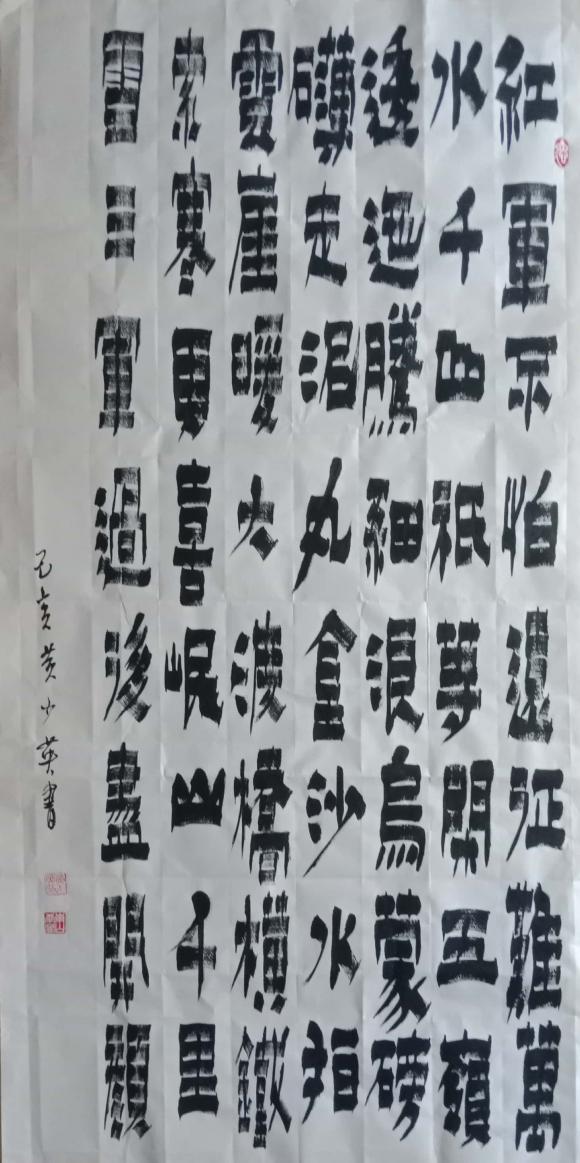 紅軍不怕遠征難萬
水千山祇等閑五嶺
逶迤騰細浪烏蒙磅
礴走泥丸金沙水拍
雲崖暖大渡橋橫鐵
索寒更喜岷山千里
雪三軍過後盡開顏
己亥黄小英書